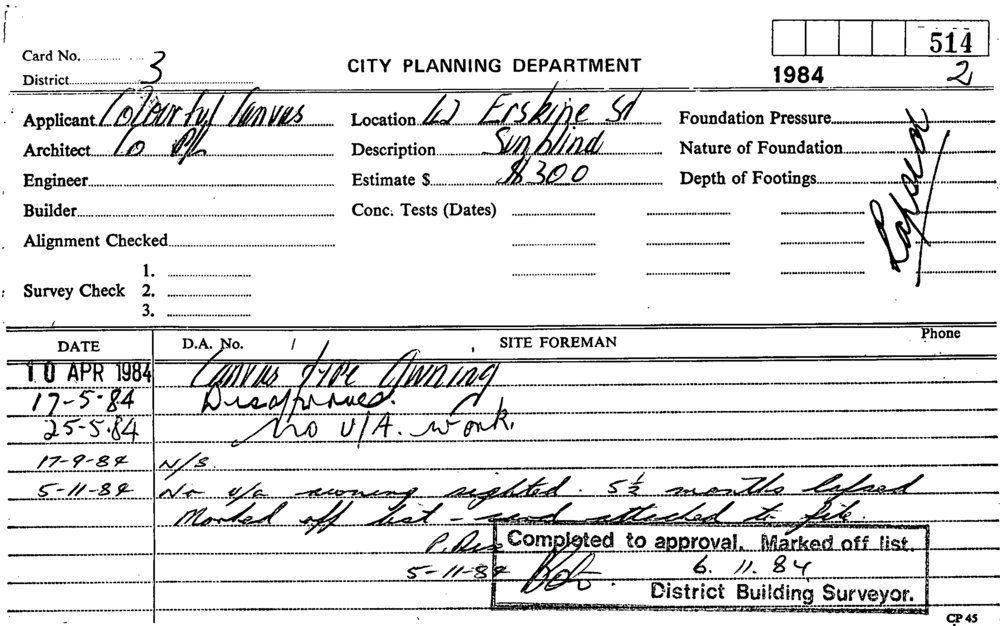 514
Card No.
District 3
CITY PLANNING DEPARTMENT
1984 2
Applicant Colourful Canvas
Location 42 Erskine St
Foundation Pressure
Architect Co P/L
Description Sunblind
Nature of Foundation
Engineer
Estimate $ $300
Depth of Footings
Lapsed
Builder
Conc. Tests (Dates)
Alignment Checked
Survey Check 1.
2.
3.
DATE D.A. No. SITE FOREMAN Phone
10 APR 1984 Canvas type Awning
17-5-84 Disapproved.
25-5-84 No U/A. work.
17-9-84 N/S.
5-11-84 No u/a awning sighted. 5½ months lapsed
Marked off list - attached to file.
P.
5-11-84
Completed to approval. Marked off list.
6. 11. 84
District Building Surveyor.
CP 45